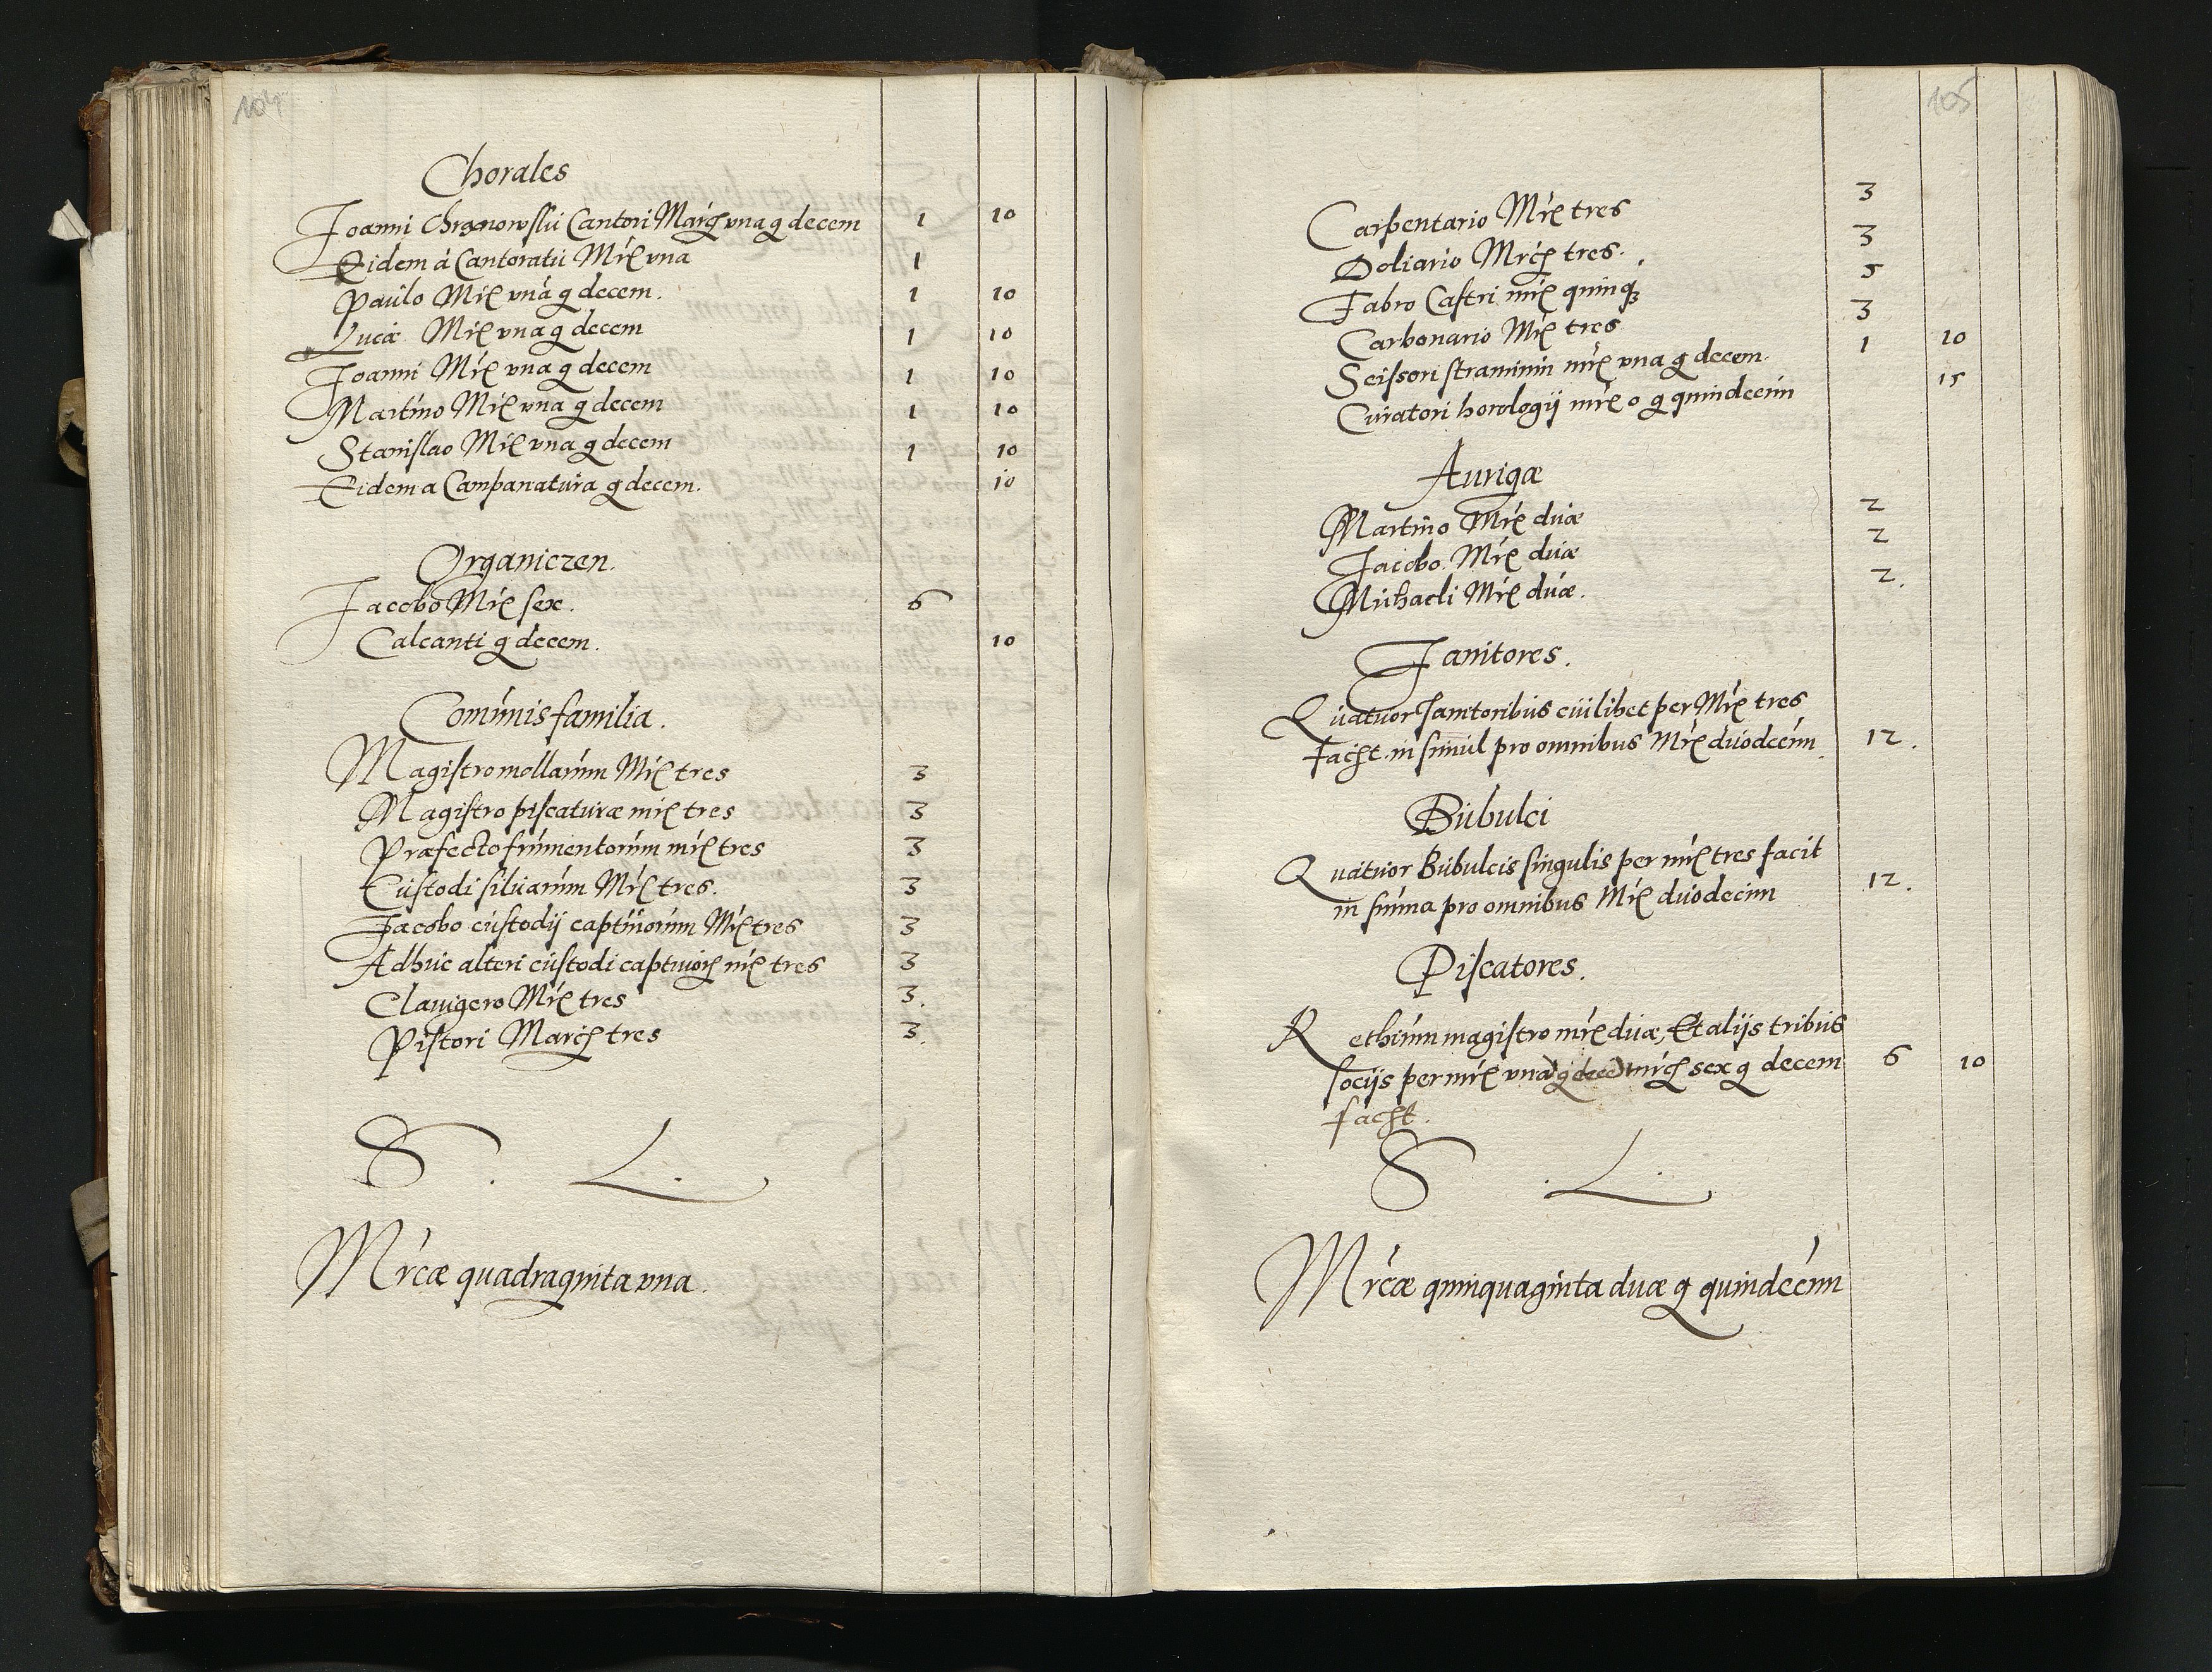 104
Chorales
Joanni Chrzanowskii Cantori Marcæ vna g decem 1 10
Eidem á Cantoratu Mrcæ vna 1
Paulo Mrcæ vna g decem. 1 10
Lucæ Mrcæ vna g decem 1 10
Joanni Mrcæ vna g decem 1 10
Martino Mrcæ vna g decem 1 10
Stanislao Mrcæ vna g decem 1 10
Eidem a Campanatura g decem. 10
Organiczen.
Jacobo Mrcæ sex. 6
Calcanti g decem. 10
Comunis familia.
Magistro mollarum Mrcæ tres 3
Magistro piscaturæ mrcæ tres 3
Præfecto frumentorum mrcæ tres 3
Custodi siluarum Mrcæ tres. 3
Jacobo custodij captiuorum Mrcæ tres 3
Adhuc alteri custodi captiuorum mrcæ tres 3
Clauigero Mrcæ tres 3.
Pistori Marcæ tres 3.
S. L.
Mrcæ quadraginta vna.
105
Carpentario Mrcæ tres 3
Doliario Mrcæ tres. 3
Fabro Castri mrcæ quinq3 5
Carbonario Mrcæ tres 3
Scissori straminum mrcæ vna g decem. 1 10
Curatori horologij mrcæ o g quindecim 15
Aurigæ
Martino Mrcæ duæ 2
Jacobo. Mrcæ duæ 2
Michaeli Mrcæ duæ. 2.
Janitores.
Quatuor Janitoribus cuilibet per Mrcæ tres
facit in simul pro omnibus Mrcæ duodecim 12.
Bubulci
Quatuor Bubulcis singulis per mrcæ tres facit
in summa pro omnibus Mrcæ duodecim 12.
Piscatores.
Rethium magistro mrcæ duæ, Et alijs tribus
socijs per mrcæ vna g dece mrcæ sex g decem 6 10
facit.
S. L.
Mrcæ quinquaginta duæ g quindecim